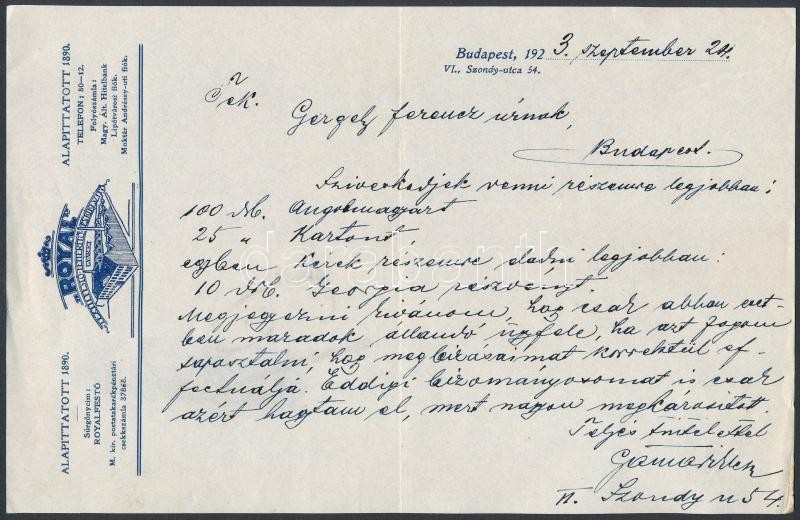 ALAPITTATOTT 1890.
TELEFON: 80—12.
Folyószámla:
Magy. Ált. Hitelbank
Lipótvárosi fiók.
Moktár Andrássy-uti fiók.
"ROYAL"
ALAPITTATOTT 1890.
Sürgönycim:
ROYALFESTŐ
M. kir. postatakarékpénztári
csekkszámla 37868.
Budapest, 1923. szeptember 24.
VI., Szondy-utca 54.
Gergely Ferencz úrnak,
Budapest.
Sziveskedjék venni részemre legjobban:
100 db. Angolmagyart
25 " Kartont
egyben kérek részemre eladni legjobban:
10 db. Georgia részvényt.
Megjegyezni kivánom, hogy csak abban eset-
ben maradok állandó ügyfele, ha azt fogom
tapasztalni, hogy megbizásaimat korrektül ef-
fectuálja. Eddigi bizományosomat is csak
azért hagytam el, mert nagyon megkárositott.
Teljes tisztelettel
VI. Szondy u 54.
darabanth